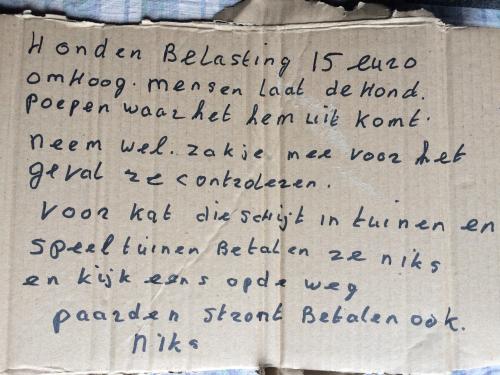 Honden Belasting 15 euro
omHoog. mensen laat de Hond.
poepen waar het hem uit komt.
neem wel. zakje mee voor het
geval ze controleren.
voor kat die schijt in tuinen en
speeltuinen Betalen ze niks
en kijk eens op de weg
paarden stront Betalen ook.
niks